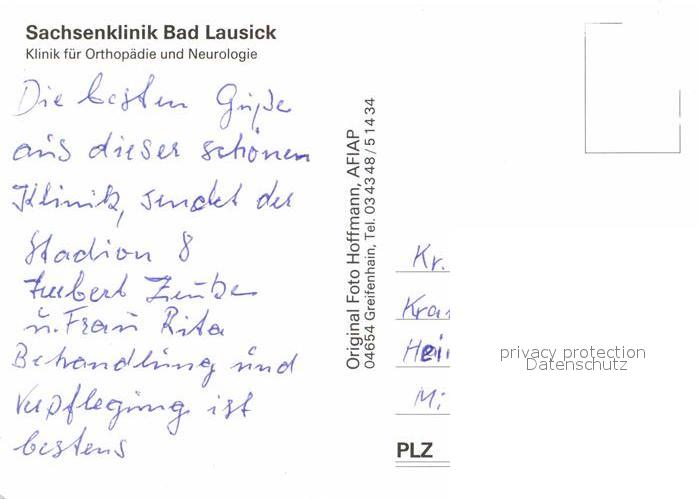 Sachsenklinik Bad Lausick
Klinik für Orthopädie und Neurologie
Die besten Grüße
aus dieser schönen
Klinik, sendet der
Stadion 8
u. Frau Rita
Behandlung und
Verpflegung ist
bestens
Original Foto Hoffmann, AFIAP
04654 Greifenhain, Tel. 03 43 48 / 5 14 34
Kr.
PLZ
privacy protection
Datenschutz